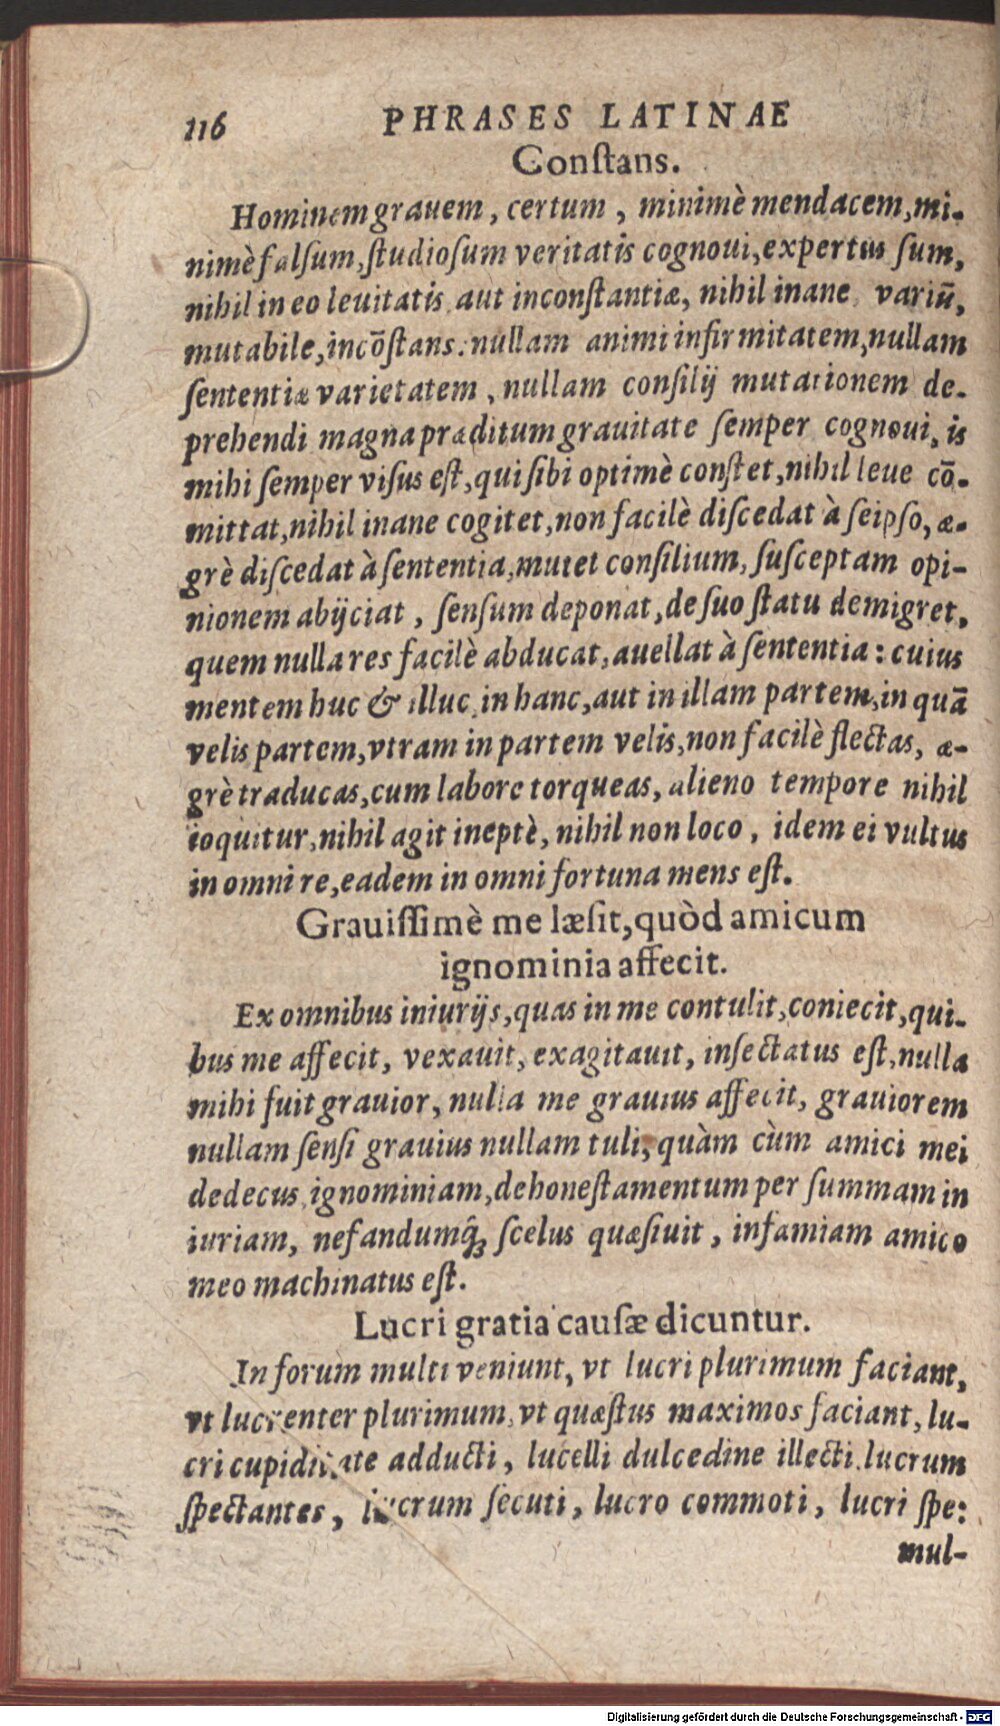 116 PHRASES LATINAE
Conſtans.
Hominem grauem, certum, minimè mendacem, mi-
nimè falſum, ſtudioſum veritatis cognoui, expertus ſum,
nihil in eo leuitatis aut inconſtantiæ, nihil inane, variū,
mutabile, incōſtans: nullam animi infirmitatem, nullam
ſententiæ varietatem, nullam conſilij mutationem de-
prehendi magna præditum grauitate ſemper cognoui, is
mihi ſemper viſus eſt, qui ſibi optimè conſtet, nihil leue cō-
mittat, nihil inane cogitet, non facilè diſcedat à ſeipſo, æ-
grè diſcedat à ſententia, mutet conſilium, ſuſceptam opi-
nionem abijciat, ſenſum deponat, de ſuo ſtatu demigret,
quem nulla res facilè abducat, auellat à ſententia: cuius
mentem huc & illuc, in hanc, aut in illam partem, in quā
velis partem, vtram in partem velis, non facilè flectas, æ-
grè traducas, cum labore torqueas, alieno tempore nihil
loquitur, nihil agit ineptè, nihil non loco, idem ei vultus
in omni re, eadem in omni fortuna mens eſt.
Grauiſſimè me læſit, quòd amicum
ignominia affecit.
Ex omnibus iniurijs, quas in me contulit, coniecit, qui-
bus me affecit, vexauit, exagitauit, inſectatus eſt, nulla
mihi fuit grauior, nulla me grauius affecit, grauiorem
nullam ſenſi grauius nullam tuli, quàm cùm amici mei
dedecus, ignominiam, dehoneſtamentum per ſummam in
iuriam, nefandumq́; ſcelus quæſiuit, infamiam amico
meo machinatus eſt.
Lucri gratia cauſæ dicuntur.
In forum multi veniunt, vt lucri plurimum faciant,
vt lucrenter plurimum, vt quæſtus maximos faciant, lu-
cri cupiditate adducti, lucelli dulcedine illecti, lucrum
ſpectantes, lucrum ſecuti, lucro commoti, lucri ſpe:
mul-
Digitalisierung gefördert durch die Deutsche Forschungsgemeinschaft - DFG